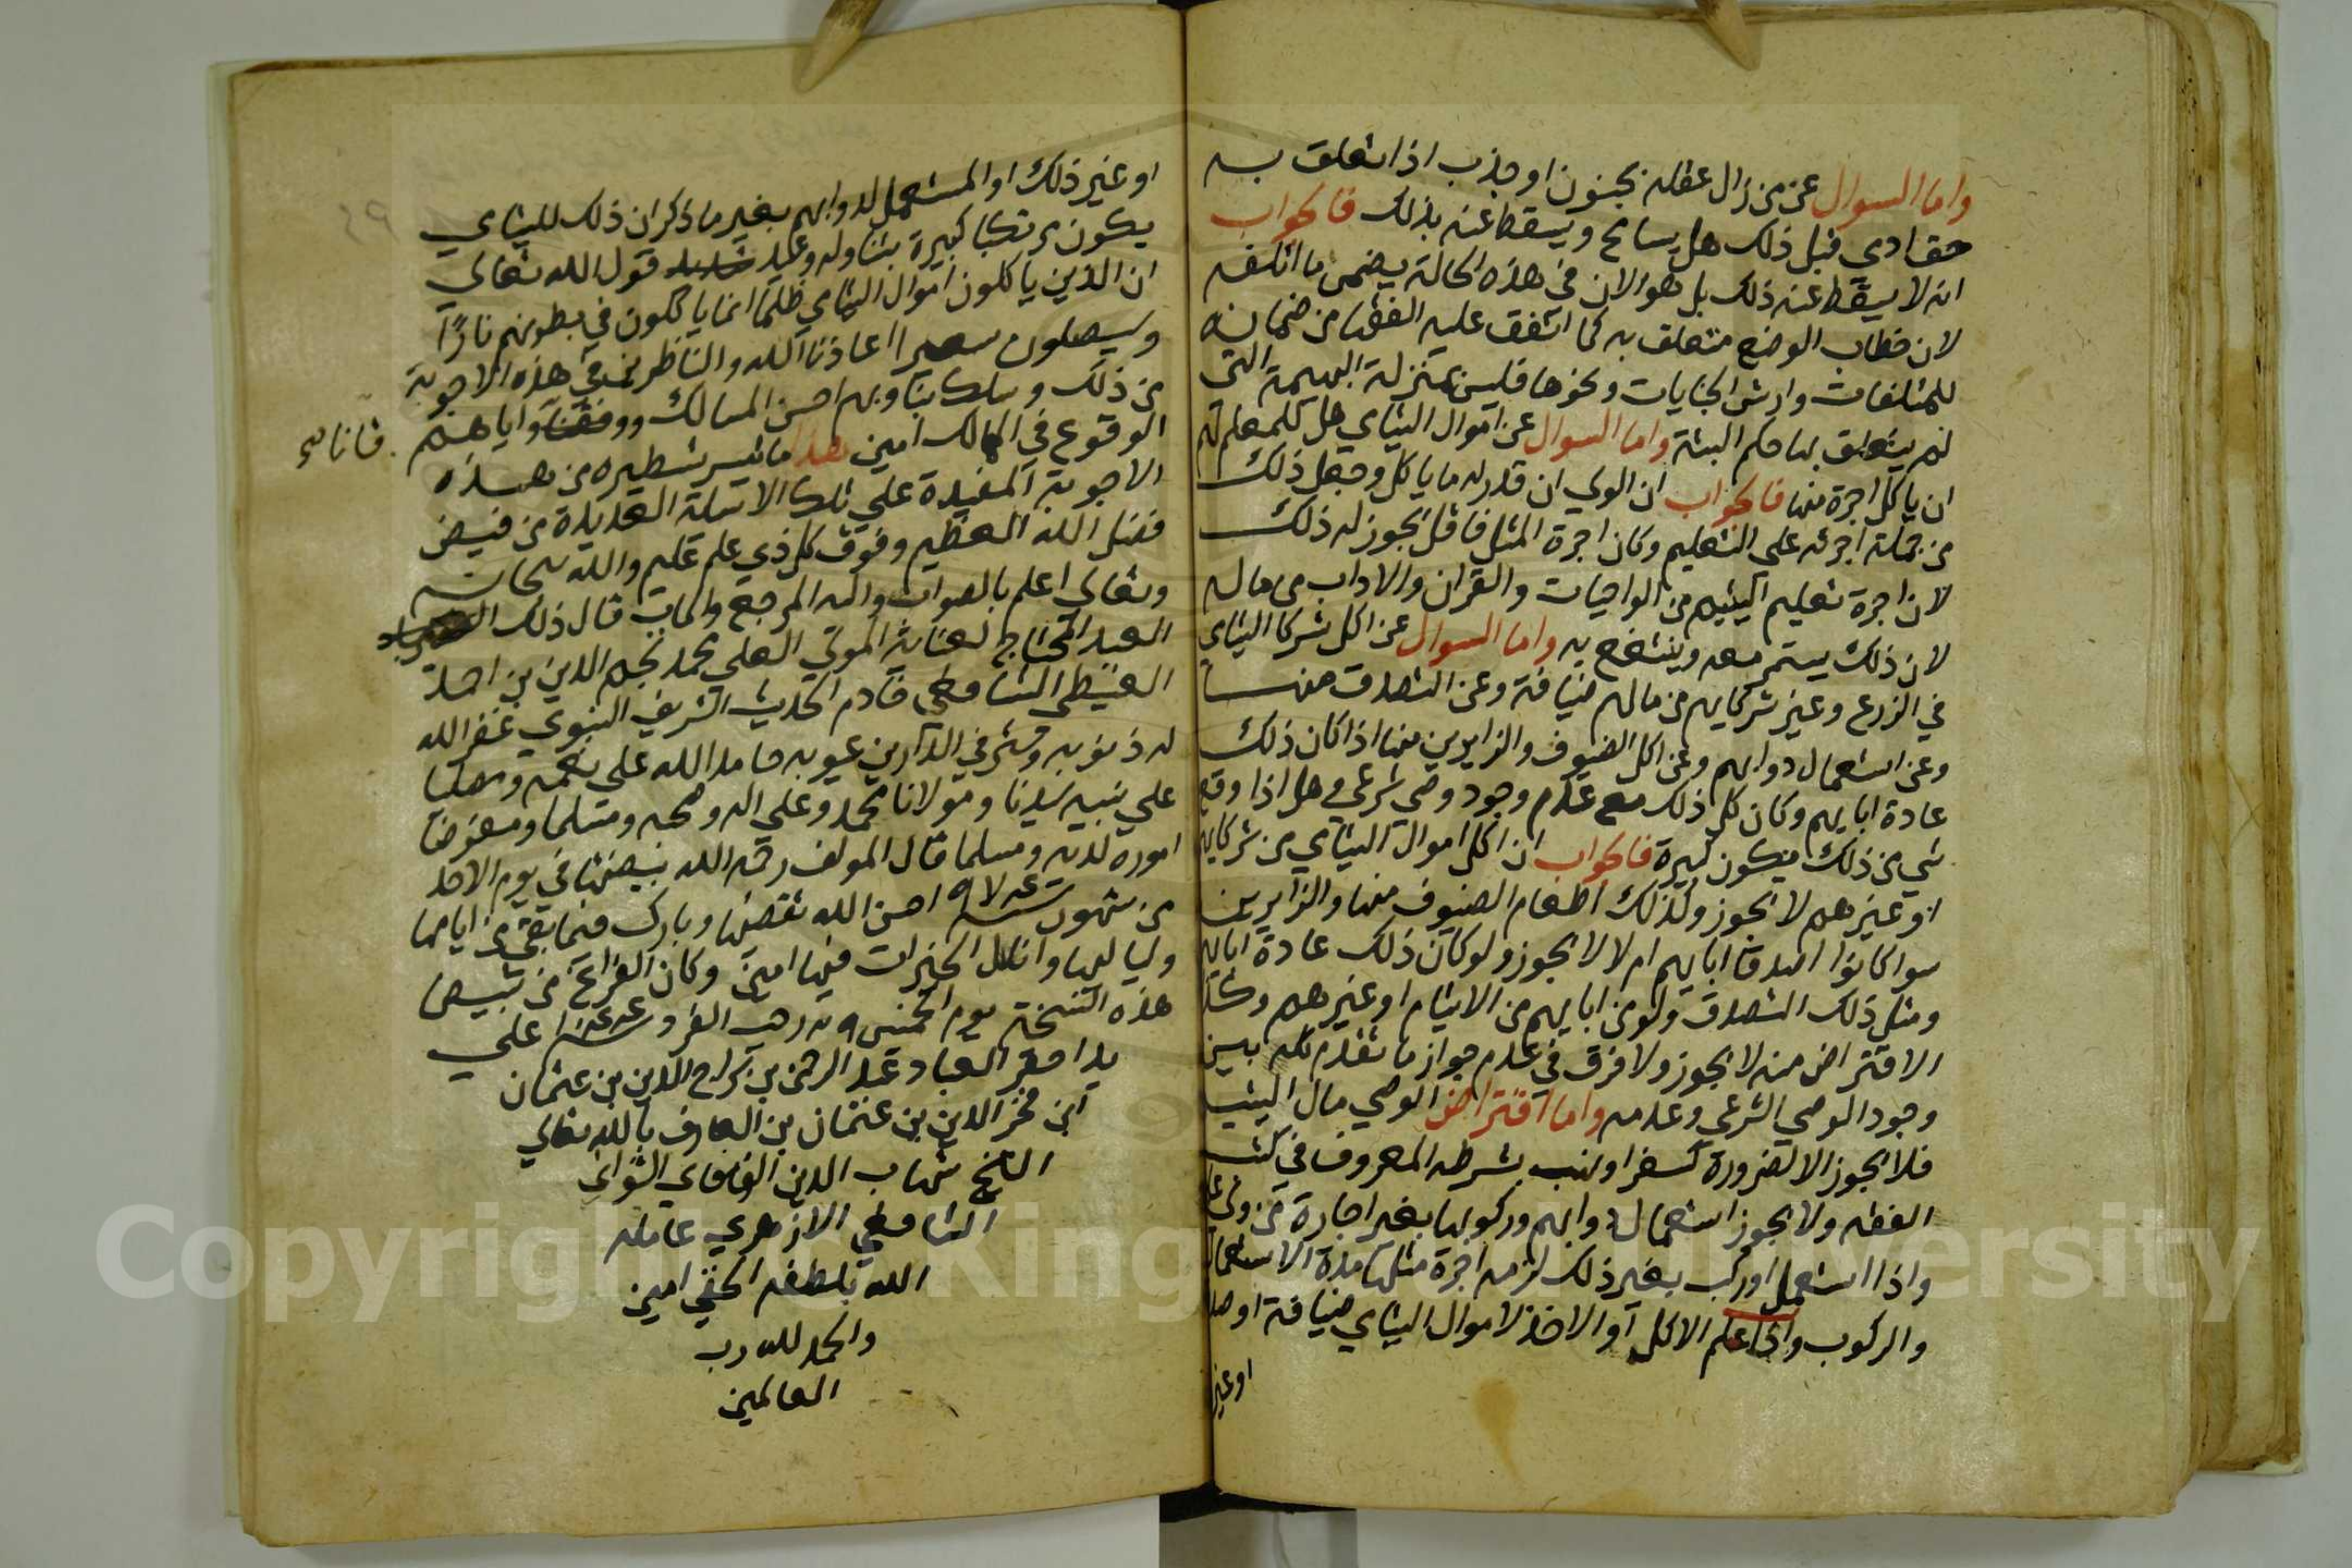 واما السوال عن من زال عقله بجنون او جذب اذا تعلق به
حق ادمي قبل ذلك هل يسامح ويسقط عنه بذلك فالجواب
انه لا يسقط عنه ذلك بل هو الان في هذه الحالة يضمن ما اتلفه
لان خطاب الوضع متعلق به كما اتفق عليه الفقها من ضمانه
للمتلفات وارش الجنايات ونحوها فليس بمنزلة البهيمة التي
لم يتعلق بها حكم البتة واما السوال عن اموال اليتامي هل لمعلمهم
ان ياكل اجرة منها فالجواب ان الولي ان قدر له ما ياكل وجعل ذلك
من جملة اجرته علي التعليم وكان اجرة المثل فاقل يجوز له ذلك
لان اجرة تعليم اليتيم من الواجبات والقران والاداب من ماله
لان ذلك يستمر معه وينتفع به واما السوال عن اكل شركا اليتامي
في الزرع وغير شركايهم من مالهم ضيافة وعن التصدق منها
وعن استعمال دوابهم وعن اكل الضيوف والزايرين منها اذا كان ذلك
عادة ابايهم وكان كل ذلك مع عدم وجود وصي شرعي وهل اذا وقع
شي من ذلك يكون كبيرة فالجواب ان اكل اموال اليتامي من شركايهم
او غيرهم لا يجوز وكذلك اطعام الضيوف منها والزايرين
سوا كانوا اصدقا ابايهم ام لا لا يجوز ولو كان ذلك عادة ابايهم
ومثل ذلك التصدق ولو من ابايهم من الايتام او غيرهم وكذا
الاقتراض منه لا يجوز ولا فرق في عدم جواز ما تقدم كله بين
وجود الوصي الشرعي وعدمه واما اقتراض الوصي مال اليتيم
فلا يجوز الا لضرورة كسفر او نهب بشرطه المعروف في كتب
الفقه ولا يجوز استعمال دوابهم وركوبها بغير اجارة من ولي
واذا استعمل او ركب بغير ذلك لزمه اجرة مثلها مدة الاستعمال
والركوب واذا علم الاكل او الاخذ لاموال اليتامي ضيافة او صد
او غير
او غير ذلك او المستعمل لدوابهم بغير ما ذكر ان ذلك لليتامي
يكون مرتكبا كبيرة يتناوله وعيد شديد قول الله تعالي
ان الذين ياكلون اموال اليتامي ظلما انما ياكلون في بطونهم نارًا
وسيصلون سعيرا اعاذنا الله والناظر في هذه الاجوبة
من ذلك وسلك بنا وبهم احسن المسالك ووفقنا واياهم
الوقوع في المهالك امين هذا ما تيسر تسطيره من هذه
الاجوبة المفيدة علي تلك الاسئلة العديدة من فيض
فضل الله العظيم وفوق كل ذي علم عليم والله سبحانه
وتعالي اعلم بالصواب واليه المرجع والماب قال ذلك
العبد المحتاج لعناية المولي العلي محمد نجم الدين بن احمد
الغيطي الشافعي خادم الحديث الشريف النبوي غفر الله
له ذنوبه وستر في الدارين عيوبه حامدا لله علي نعمه ومصليا
علي نبيه سيدنا ومولانا محمد وعلي اله وصحبه ومسلما ومفوضا
اموره لديه ومسلما قال المولف رحمه الله بيضتها في يوم الاحد
من شهور سنة احسن الله تقضيها وبارك فيما بقي من ايامها
ولياليها وانال الخيرات فيها امين وكان الفراغ من تبييض
هذه النسخة يوم الخميس رجب الفرد علي
يد احقر العباد عبد الرحمن بن سراج الدين بن عثمان
ابن فخر الدين بن عثمان بن العارف بالله تعالي
الشيخ شهاب الدين
الشافعي الازهري عامله
الله بلطفه الخفي امين
والحمد لله رب
العالمين
Copyright © King Saud University